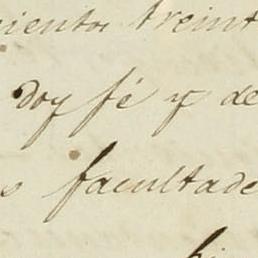 cientos treint
doy fé y de
s facultade